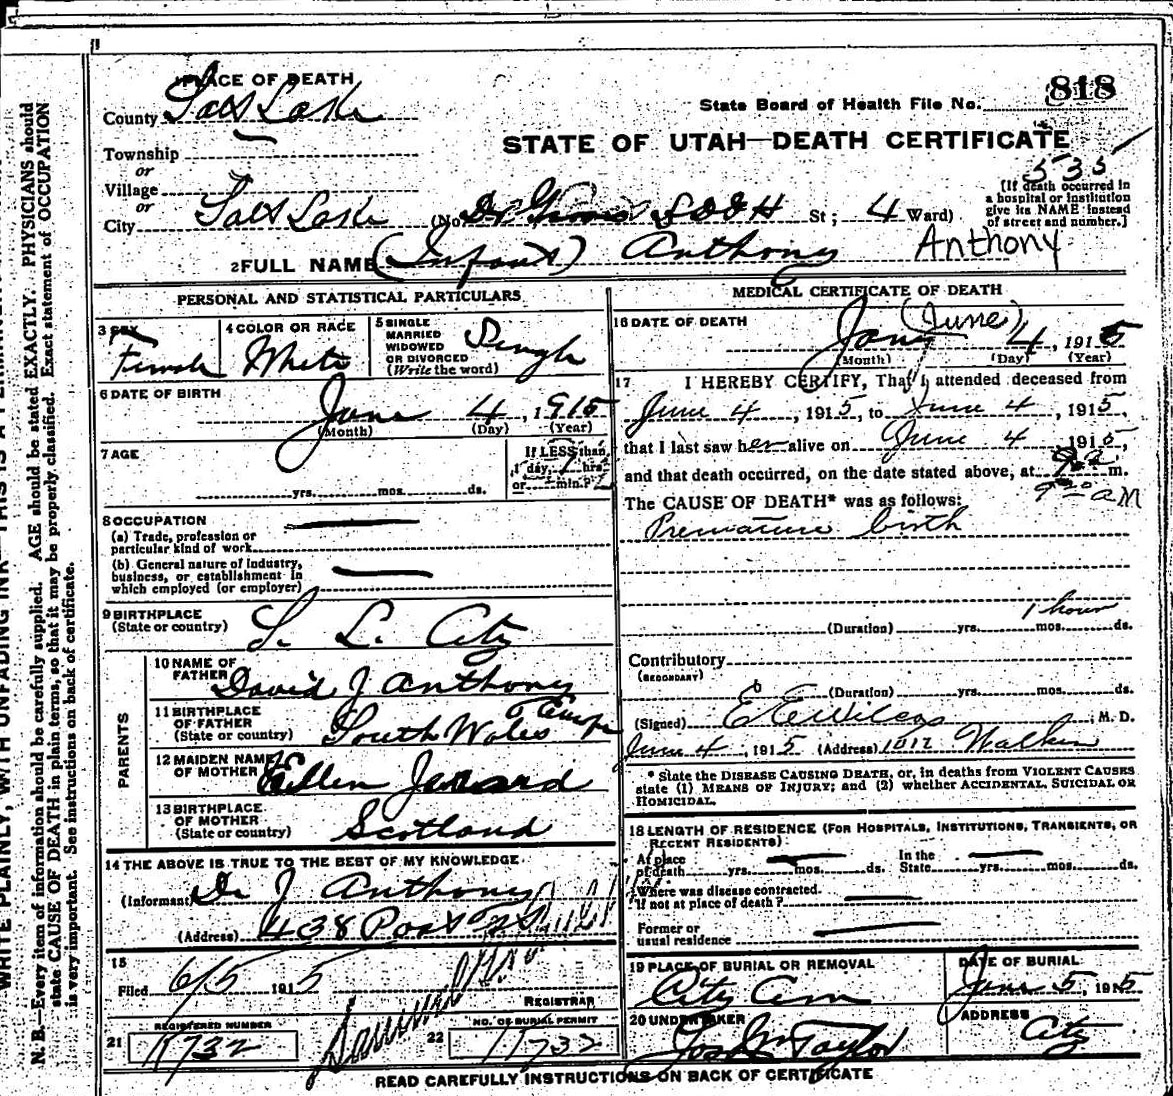 1 PLACE OF DEATH
County Salt Lake
State Board of Health File No. 818
STATE OF UTAH—DEATH CERTIFICATE
Township
or
Village
or
City Salt Lake (No. St; 4 Ward)
535
[If death occurred in
a hospital or institution
give its NAME instead
of street and number.]
2 FULL NAME (Infant) Anthony Anthony
PERSONAL AND STATISTICAL PARTICULARS
3 SEX Female
4 COLOR OR RACE White
5 SINGLE
MARRIED
WIDOWED
OR DIVORCED
(Write the word)
Single
6 DATE OF BIRTH
June 4, 1915
(Month) (Day) (Year)
7 AGE
If LESS than
1 day, 1 hrs.
or min.?
yrs. mos. ds.
8 OCCUPATION
(a) Trade, profession or
particular kind of work
(b) General nature of industry,
business, or establishment in
which employed (or employer)
9 BIRTHPLACE
(State or country) S. L. City
PARENTS
10 NAME OF
FATHER David J Anthony
11 BIRTHPLACE
OF FATHER
(State or country) South Wales Europe
12 MAIDEN NAME
OF MOTHER Ellen
13 BIRTHPLACE
OF MOTHER
(State or country) Scotland
14 THE ABOVE IS TRUE TO THE BEST OF MY KNOWLEDGE
(Informant) D. J. Anthony
(Address) 438
15
Filed 6/5 1915
REGISTRAR
REGISTERED NUMBER
21 11732
NO. OF BURIAL PERMIT
22 11732
MEDICAL CERTIFICATE OF DEATH
16 DATE OF DEATH
(June)
4, 1915
(Month) (Day) (Year)
17 I HEREBY CERTIFY, That I attended deceased from
June 4, 1915, to June 4, 1915,
that I last saw her alive on June 4 1915,
and that death occurred, on the date stated above, at 9 30 m.
9 30 AM
The CAUSE OF DEATH* was as follows:
Premature birth
1 hour
(Duration) yrs. mos. ds.
Contributory
(SECONDARY)
(Duration) yrs. mos. ds.
(Signed) E E Wilcox, M. D.
June 4, 1915 (Address) 1012 Walker
* State the DISEASE CAUSING DEATH, or, in deaths from VIOLENT CAUSES
state (1) MEANS OF INJURY; and (2) whether ACCIDENTAL, SUICIDAL OR
HOMICIDAL.
18 LENGTH OF RESIDENCE (FOR HOSPITALS, INSTITUTIONS, TRANSIENTS, OR
RECENT RESIDENTS)
At place
of death yrs. mos. ds.
In the
State yrs. mos. ds.
Where was disease contracted
if not at place of death?
Former or
usual residence
19 PLACE OF BURIAL OR REMOVAL
City Cem
DATE OF BURIAL
June 5, 1915
20 UNDERTAKER
Jos Wm Taylor
ADDRESS
City
READ CAREFULLY INSTRUCTIONS ON BACK OF CERTIFICATE
N. B.—Every item of information should be carefully supplied. AGE should be stated EXACTLY. PHYSICIANS should
state CAUSE OF DEATH in plain terms, so that it may be properly classified. Exact statement of OCCUPATION
is very important. See instructions on back of certificate.
WRITE PLAINLY, WITH UNFADING INK—THIS IS A